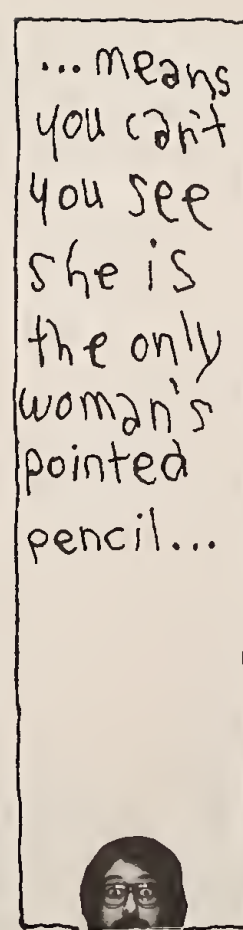 ... means
you can't
you see
she is
the only
woman's
pointed
pencil...